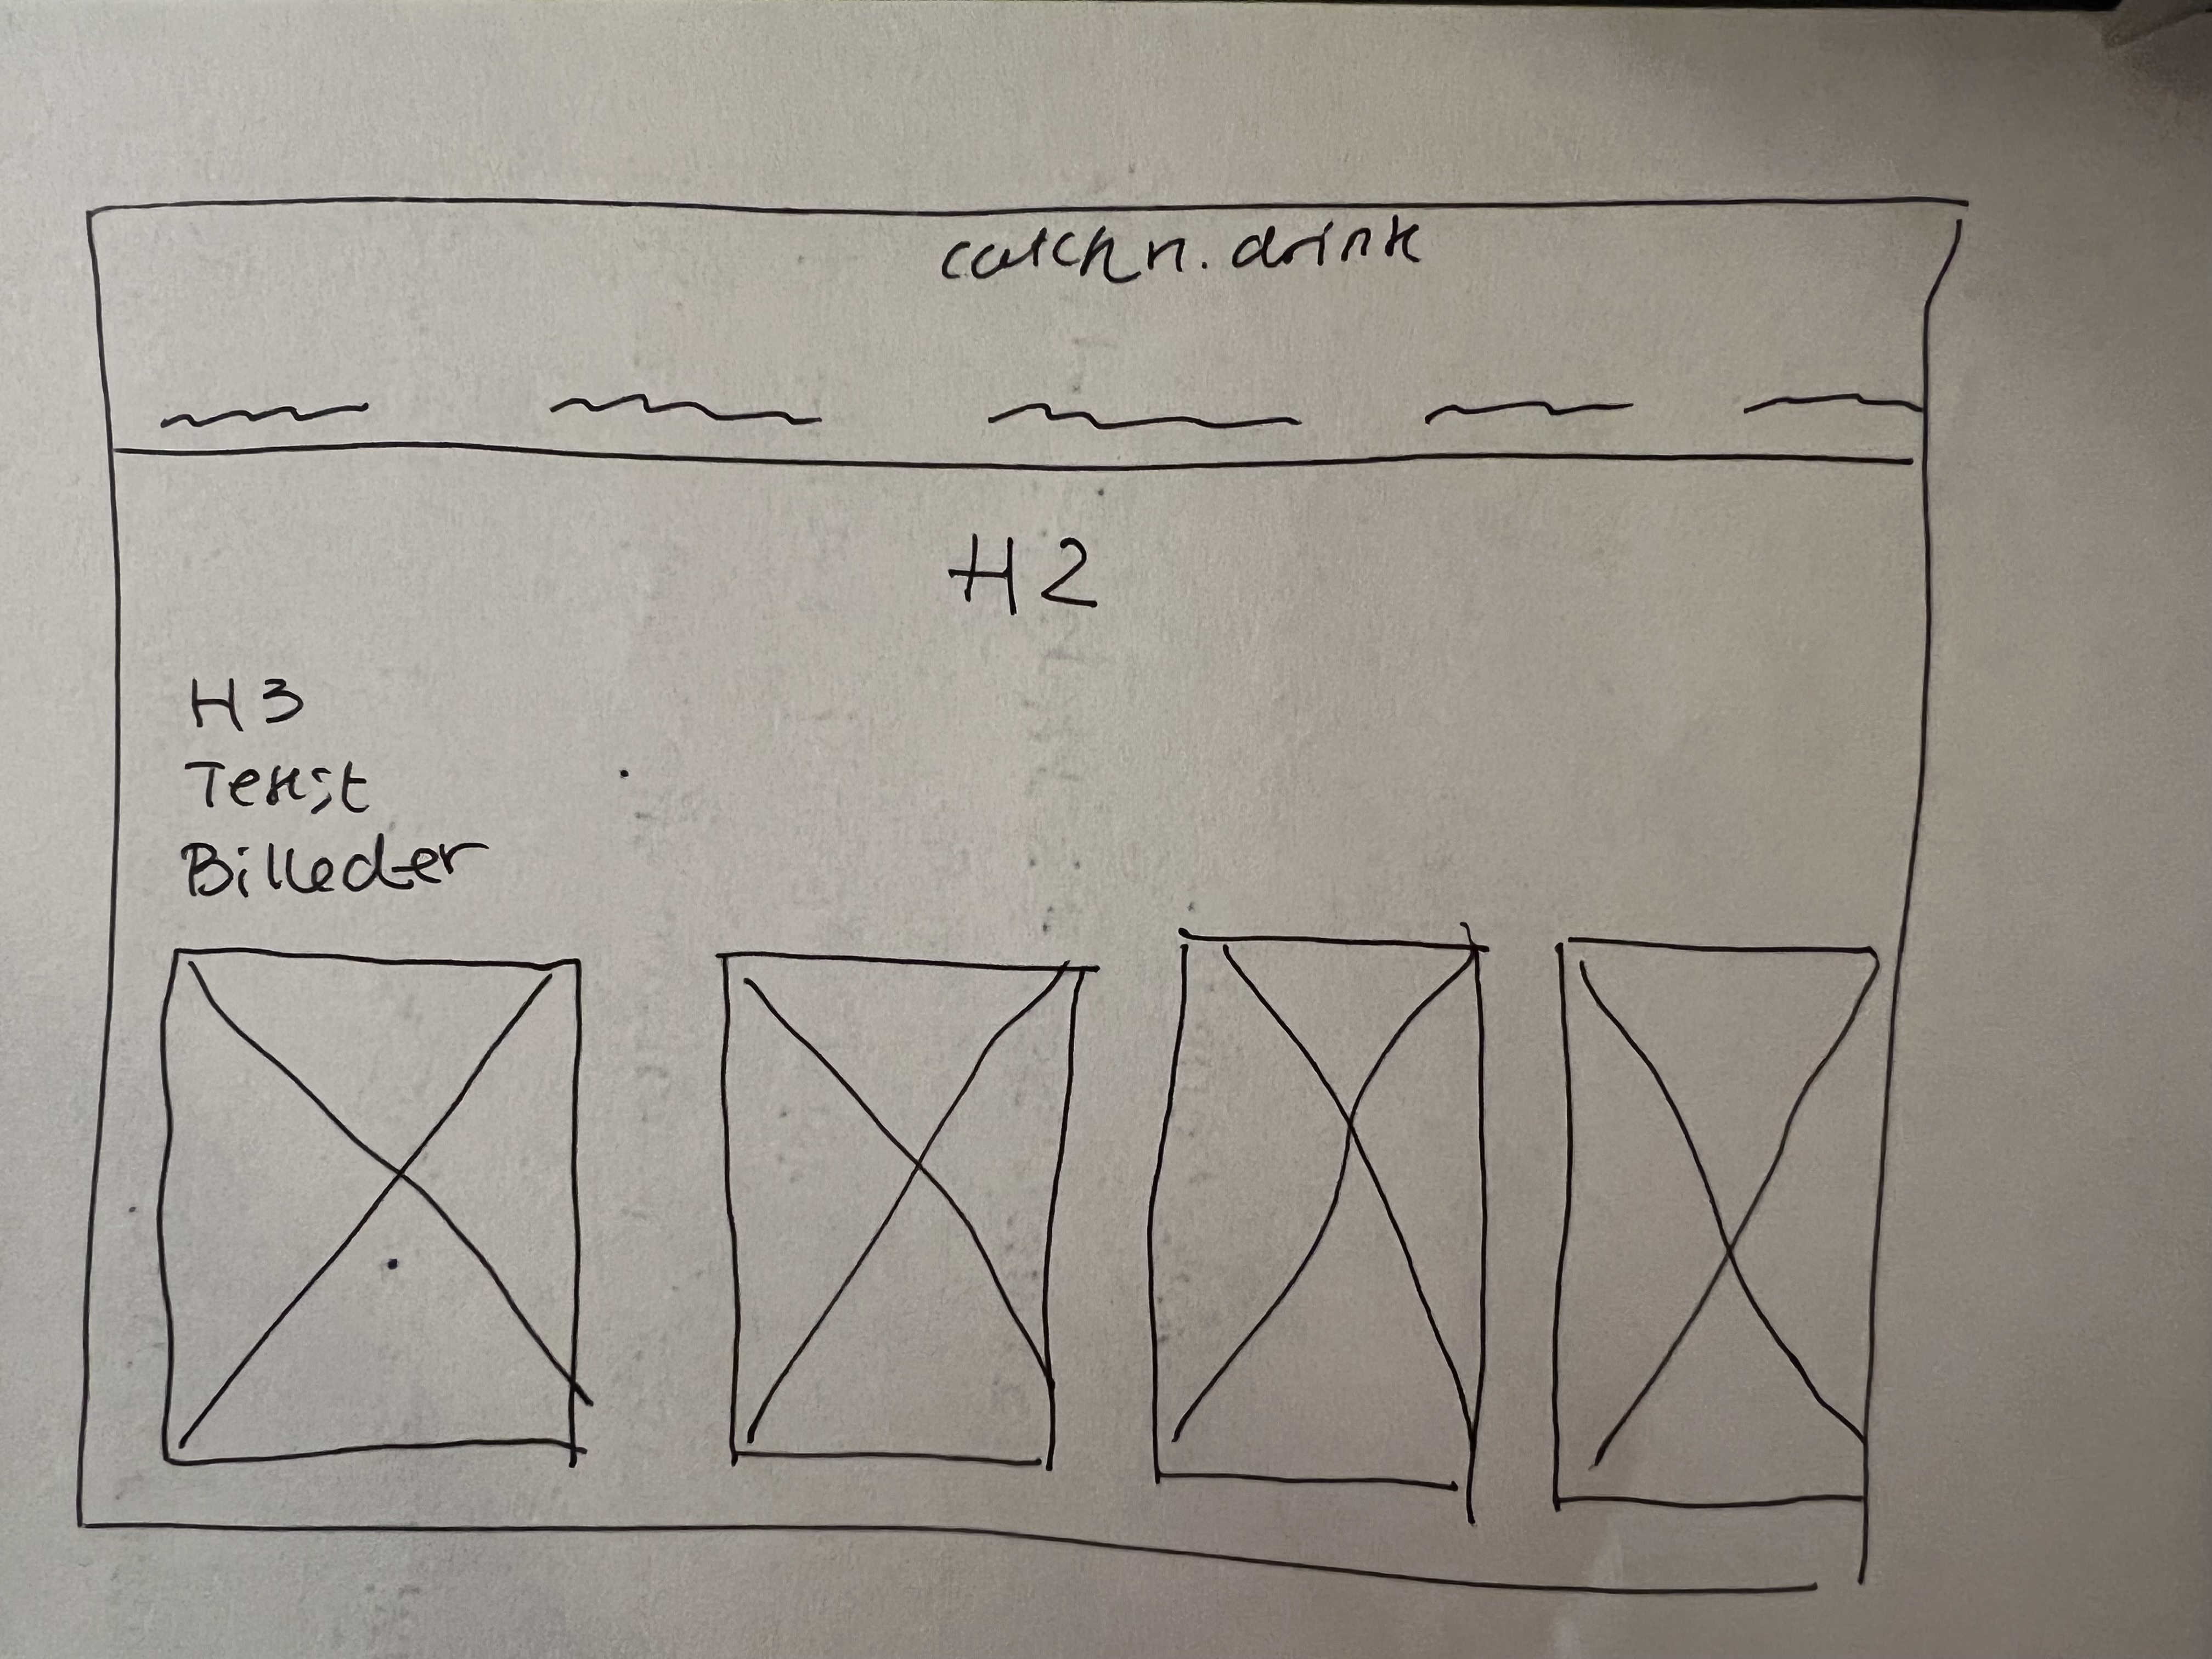 catch n. drink
H2
H3
Tekst
Billeder